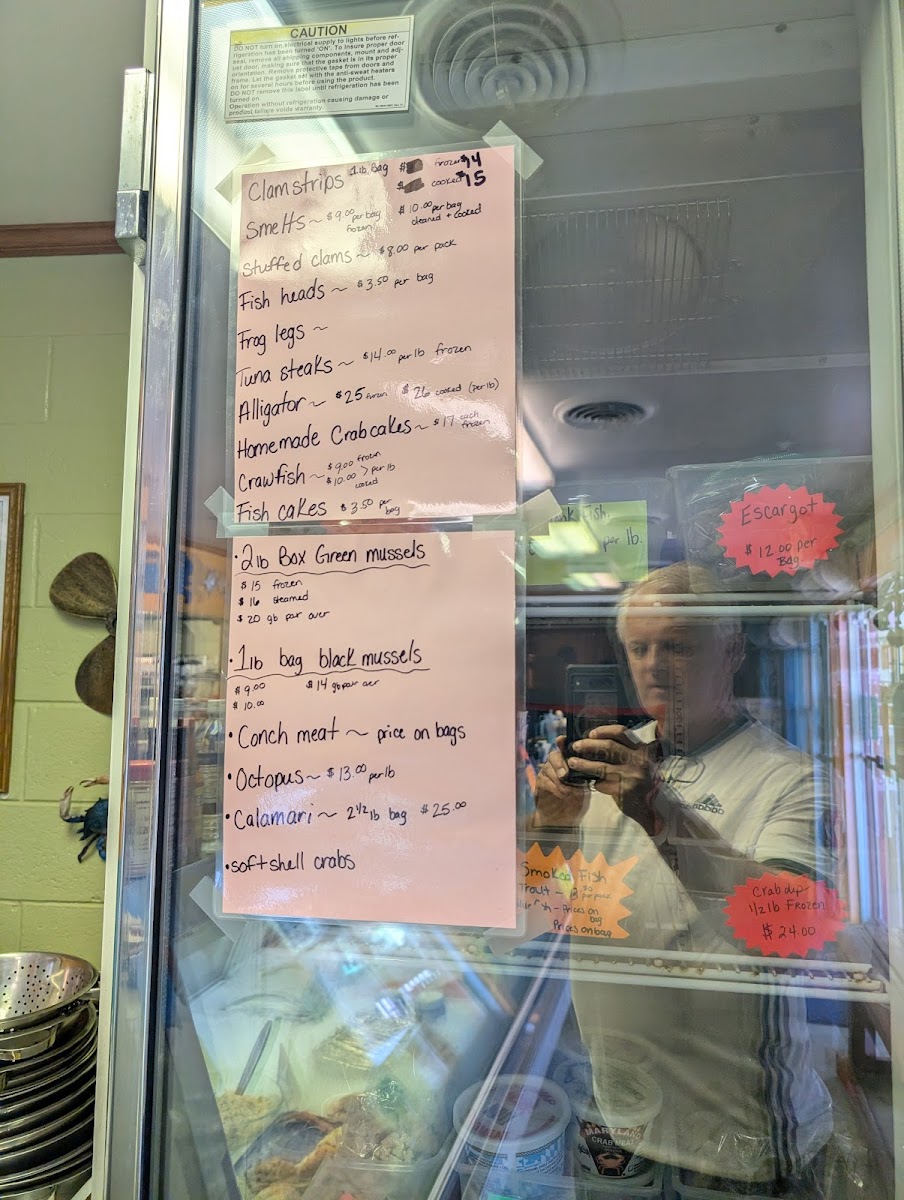 CAUTION
DO NOT turn on electrical supply to lights before ref-
rigeration has been turned 'ON'. To insure proper door
seal, remove all shipping components, mount and adj-
ust door, making sure that the gasket is in its proper
orientation. Remove protective tape from doors and
frame. Let the gasket set with the anti-sweat heaters
on for several hours before using the product.
DO NOT remove this label until refrigeration has been
turned on.
Operation without refrigeration causing damage or
product failure voids warranty.
Clamstrips 1lb. Bag $ frozen $14
$ cooked $15
Smelts ~ $9.00 per bag frozen $10.00 per bag cleaned + cooked
Stuffed clams ~ $8.00 per pack
Fish heads ~ $3.50 per bag
Frog legs ~
Tuna steaks ~ $14.00 per lb frozen
Alligator ~ $25 frozen $26 cooked (per lb)
Homemade Crabcakes ~ $17 each frozen
Crawfish ~ $9.00 frozen
$10.00 > per lb
cooked
Fish cakes $3.50 per bag
• 2lb Box Green mussels
$15 frozen
$16 steamed
$20 gb par over
• 1lb bag black mussels
$9.00 $14 gb par
$10.00
• Conch meat ~ price on bags
• Octopus ~ $13.00 per lb
• Calamari ~ 2 1/2 lb bag $25.00
• softshell crabs
Fish
per lb.
Escargot
$12.00 per
Bag
Smoked Fish
Trout -
Prices on
bag
Prices on bag
Crab dip
1/2 lb Frozen
$24.00
adidas
MARYLAND
CRAB MEAT